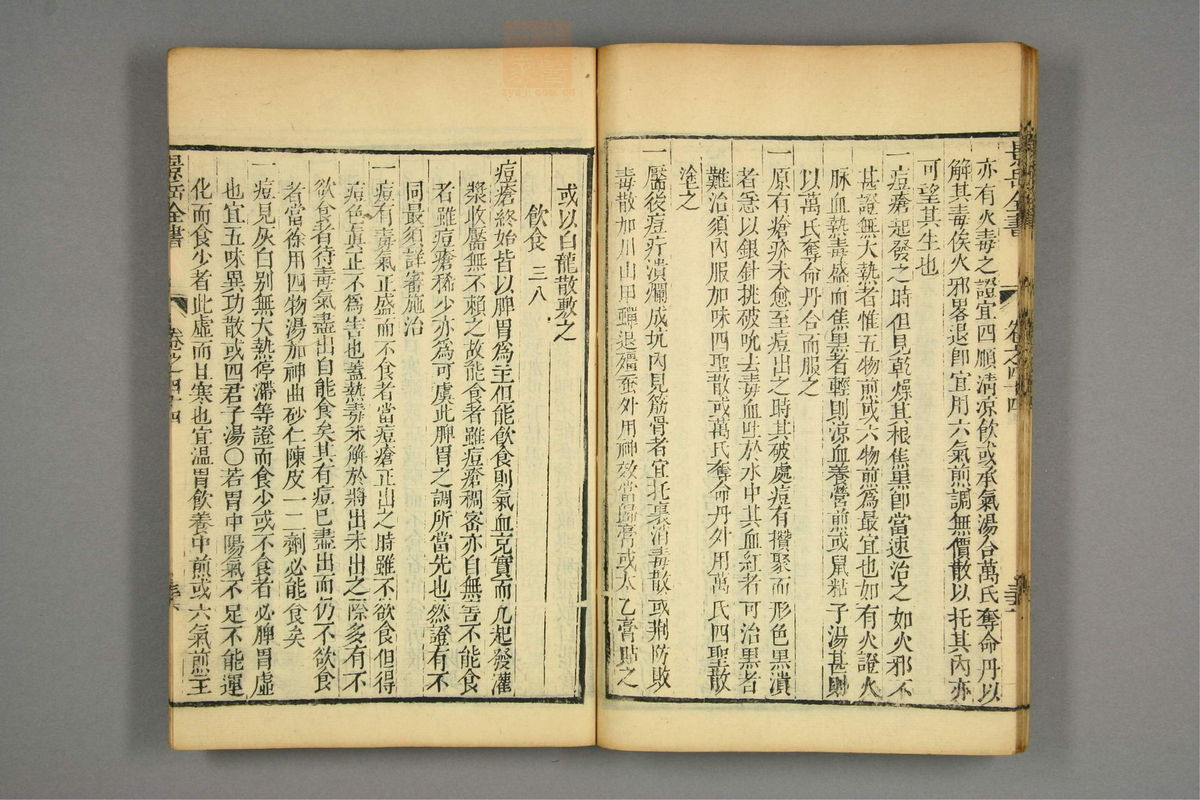 景岳全書 卷之四十四
亦有火毒之證宜四順清涼飲或承氣湯合萬氏奪命丹以
解其毒俟火邪畧退卽宜用六氣煎調無價散以托其內亦
可望其生也
一痘瘡起發之時但見乾燥其根焦黑卽當速治之如火邪不
甚證無大熱者惟五物煎或六物煎爲最宜也如有火證火
脉血熱毒盛而焦黑者輕則涼血養營煎或鼠粘子湯甚則
以萬氏奪命丹合而服之
一原有瘡疥未愈至痘出之時其破處痘有攢聚而形色黑潰
者急以銀針挑破吮去毒血吐於水中其血紅者可治黑者
難治須內服加味四聖散或萬氏奪命丹外用萬氏四聖散
塗之
一靨後痘疔潰爛成坑內見筋骨者宜托裏消毒散或荆防敗
毒散加川山甲蟬退殭蚕外用神效當歸膏或太乙膏貼之
或以白龍散敷之
飲食 三八
痘瘡終始皆以脾胃爲主但能飲食則氣血充實而凡起發灌
漿收靨無不賴之故能食者雖痘瘡稠密亦自無害不能食
者雖痘瘡稀少亦爲可虞此脾胃之調所當先也然證有不
同最須詳審施治
一痘有毒氣正盛而不食者當痘瘡正出之時雖不欲食但得
痘色眞正不爲害也蓋熱毒未解於將出未出之際多有不
欲食者待毒氣盡出自能食矣其有痘已盡出而仍不欲食
者當徐用四物湯加神曲砂仁陳皮一二劑必能食矣
一痘見灰白别無大熱停滯等證而食少或不食者必脾胃虛
也宜五味異功散或四君子湯〇若胃中陽氣不足不能運
化而食少者此虛而且寒也宜溫胃飲養中煎或六氣煎主
景岳全書 卷之四十四